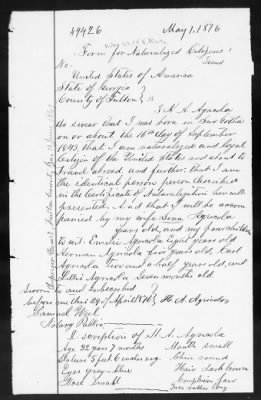 49426 May 1, 1876
Form for Naturalized Citizens
Issued
No.
United States of America
State of Georgia }
County of Fulton } ss
I H. A. Agricola
do swear that I was born in
on or about the 16th day of September
1843, that I am a naturalized and loyal
Citizen of the United States and about to
travel abroad, and further, that I am
the identical person described
in the Certificate of Naturalization herewith
presented. And that I will be accom
panied by my wife Lena Agricola
years old, and my four children
to wit. Emilie Agricola Eight years old
Herman Agricola five years old, Karl
Agricola two and a half years old, and
Agricola Seven months old.
Sworn to and subscribed }
before me this 29 of April 1876 } H. A. Agricola
Samuel Weil
Notary Public
Description of H. A. Agricola
Age 32 years 7 months Mouth small
Stature 5 feet 6 inches eng. Chin round
Eyes grey-blue Hair dark brown
Nose small Complexion fair
Face rather long